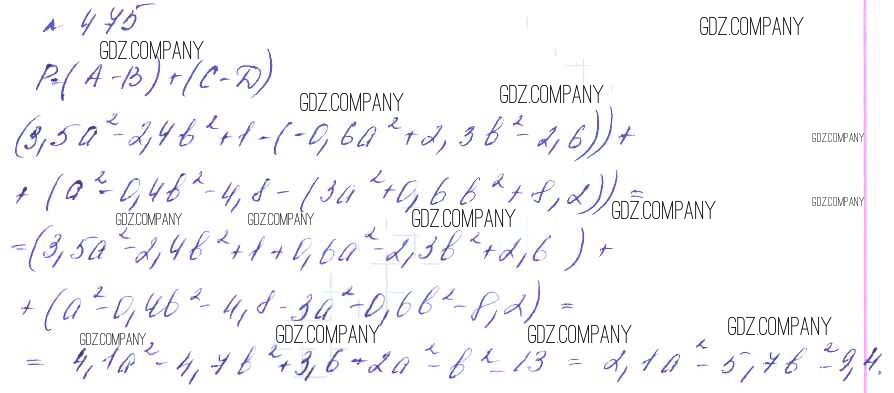 № 475
GDZ.COMPANY
GDZ.COMPANY
P=(A-B)+(C-D)
GDZ.COMPANY
GDZ.COMPANY
(3,5a²-2,4b²+1-(-0,6a²+2,3b²-2,6))+
GDZ.COMPANY
+(a²-0,4b²-4,8-(3a²+0,6b²+8,2))=
GDZ.COMPANY
GDZ.COMPANY
GDZ.COMPANY
GDZ.COMPANY
GDZ.COMPANY
=(3,5a²-2,4b²+1+0,6a²-2,3b²+2,6)+
+(a²-0,4b²-4,8-3a²-0,6b²-8,2)=
GDZ.COMPANY
GDZ.COMPANY
GDZ.COMPANY
GDZ.COMPANY
=4,1a²-4,7b²+3,6+2a²-b²-13=2,1a²-5,7b²-9,4.